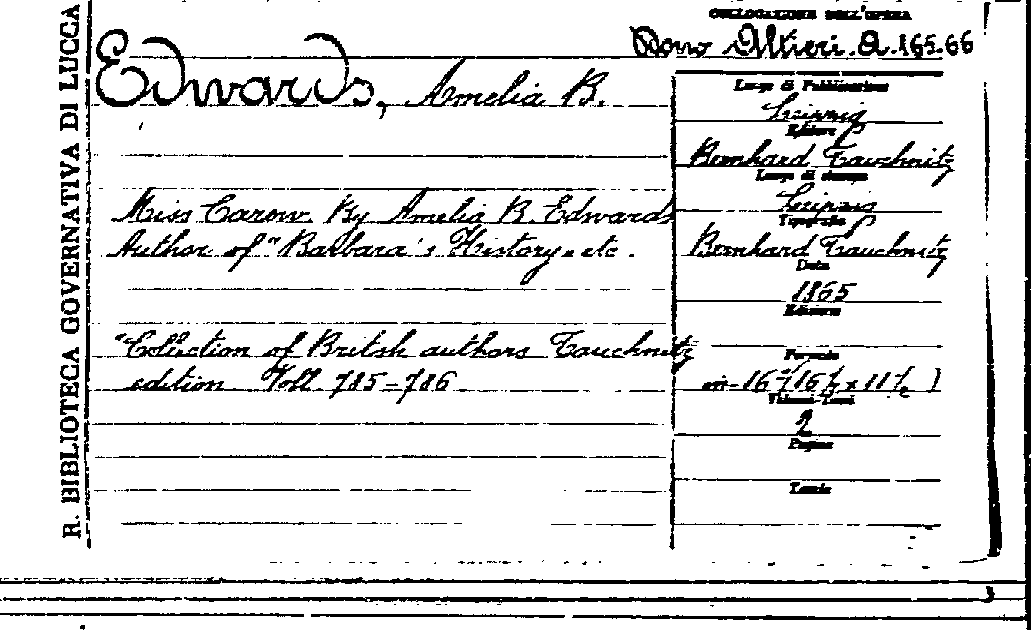 R. BIBLIOTECA GOVERNATIVA DI LUCCA
COLLOCAZIONE DELL'OPERA
Dono Altieri. A. 165.66
Edwards, Amelia B.
Miss Carow. By Amelia B. Edwards
Author of "Barbara's History" etc.
"Collection of Britsh authors Tauchnitz
edition Voll 785-786
Luogo di Pubblicazione
Leipzig
Editore
Bernhard Tauchnitz
Luogo di stampa
Leipzig
Tipografia
Bernhard Tauchnitz
Data
1865
Edizione
Formato
in-16º (16½ x 11½)
Volumi-Tomi
2
Pagine
Tavole